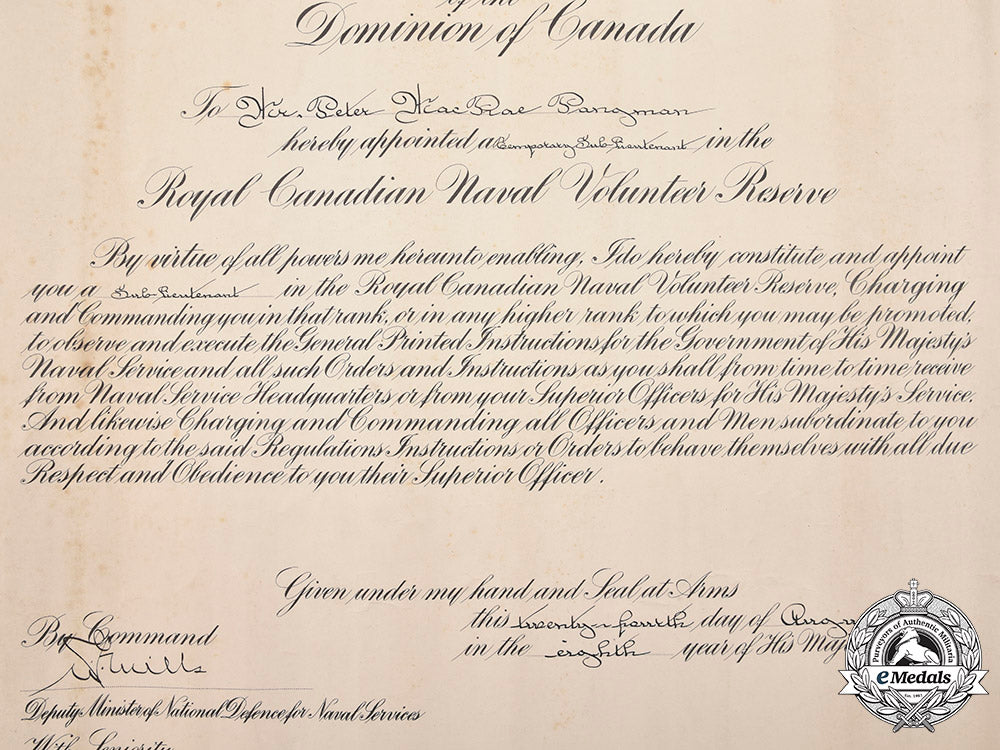 of the
Dominion of Canada
To Mr. Peter MacRae Pangman
hereby appointed a Temporary Sub-Lieutenant in the
Royal Canadian Naval Volunteer Reserve
By virtue of all powers me hereunto enabling, I do hereby constitute and appoint
you a Sub-Lieutenant in the Royal Canadian Naval Volunteer Reserve, Charging
and Commanding you in that rank, or in any higher rank to which you may be promoted,
to observe and execute the General Printed Instructions for the Government of His Majesty's
Naval Service and all such Orders and Instructions as you shall from time to time receive
from Naval Service Headquarters or from your Superior Officers for His Majesty's Service.
And likewise Charging and Commanding all Officers and Men subordinate to you
according to the said Regulations Instructions or Orders to behave themselves with all due
Respect and Obedience to you their Superior Officer.
Given under my hand and Seal at Arms
this twenty-fourth day of Augu
in the eighth year of His Maj
By Command
Deputy Minister of National Defence for Naval Services
With Seniority
Purveyors of Authentic Militaria
eMedals
Est. 1967